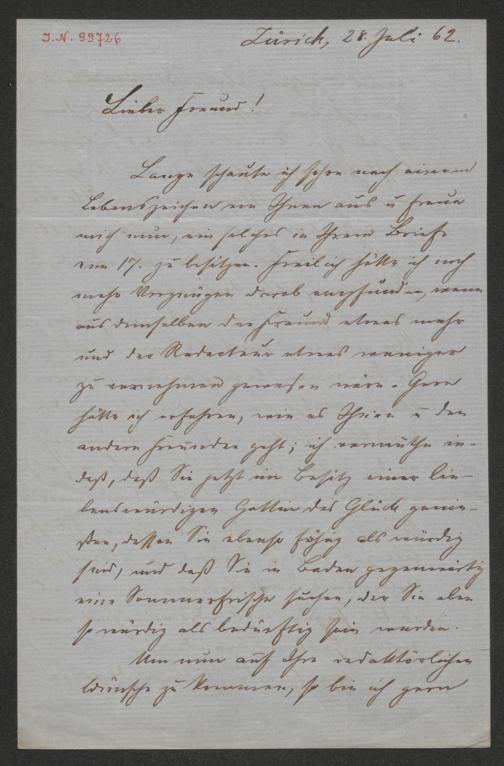 J.N. 99726
Zürich, 28. Juli 62.
Lieber Freund!
Lange schaute ich schon nach einem
Lebenszeichen von Ihnen aus u freue
mich nun, ein solches in Ihrem Briefe
vom 17. zu besitzen. Freilich hätte ich noch
mehr Vergnügen darob empfunden, wenn
aus demselben der Freund etwas mehr
und der Redacteur etwas weniger
zu vernehmen gewesen wäre. Gern
hätte ich erfahren, wie es Ihnen u den
andern Freunden geht; ich vermuthe in-
deß, daß Sie jetzt im Besitz einer lie-
benswürdigen Gattin das Glück genie-
ßen, dessen Sie ebenso fähig als würdig
sind, und daß Sie in Baden gegenwärtig
eine Sommerfrische suchen, der Sie eben
so würdig als bedürftig sein werden.
Um nun auf Ihre redaktörlichen
Wünsche zu kommen, so bin ich gern